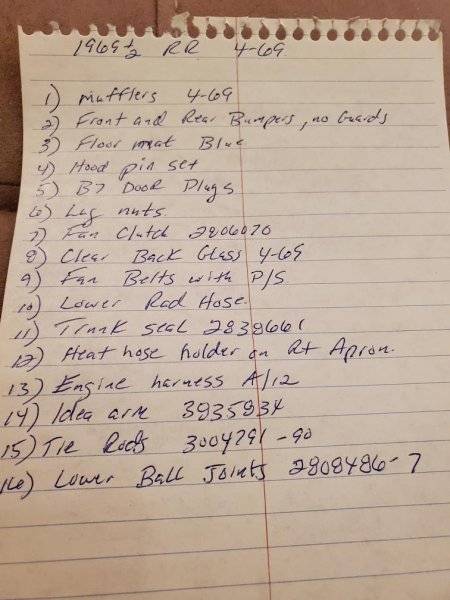 1969½ RR 4-69
1) Mufflers 4-69
2) Front and Rear Bumpers, no Guards
3) Floor mat Blue
4) Hood pin set
5) B7 Door Plugs
6) Lug nuts
7) Fan Clutch 2806070
8) Clear Back Glass 4-69
9) Fan Belts with P/S
10) Lower Rad Hose.
11) Trunk seal 2838661
12) Heat hose holder on Rt Apron.
13) Engine harness A/12
14) Idea arm 3935934
15) Tie Rods 3004791-90
16) Lower Ball Joints 2808486-7